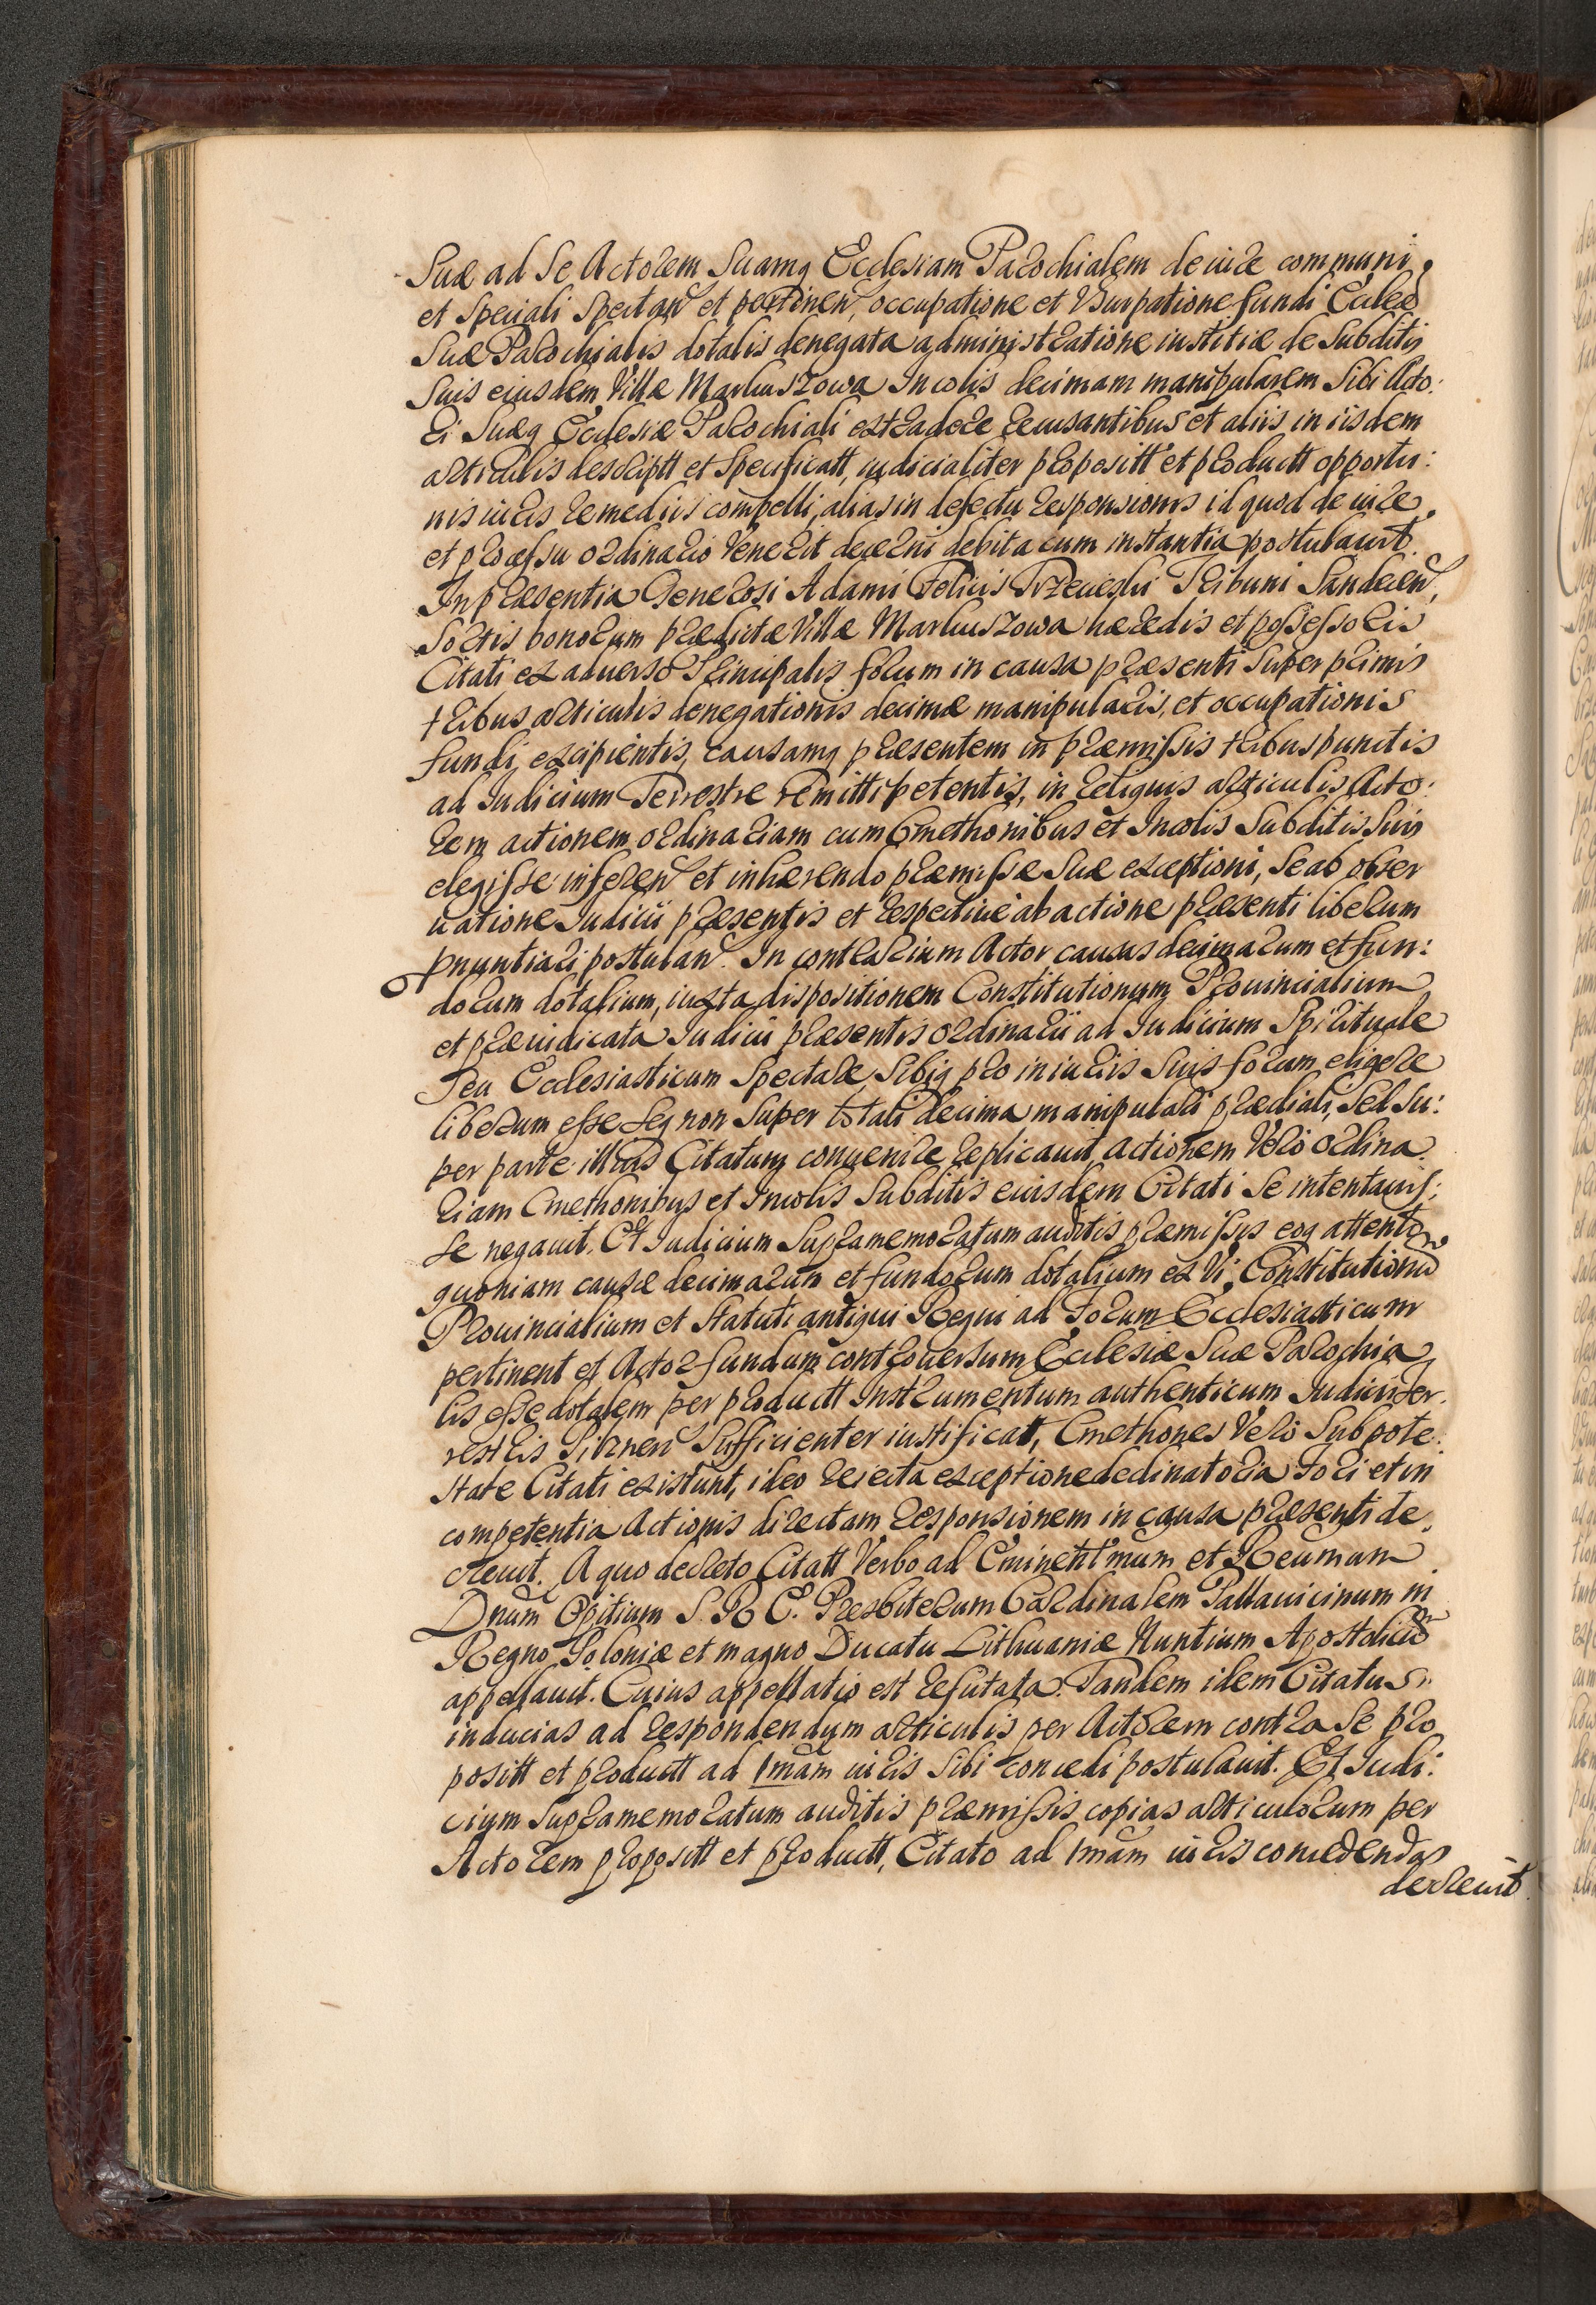 Suæ ad Se Actorem Suamq Ecclesiam Parochialem de iure communi
et Speciali Spectan et pertinen, occupatione et Vsurpatione fundi Eccleæ
Suæ Parochialis dotalis denegata administratione iustitiæ de Subditis
Suis eiusdem Villæ Markuszowa Incolis decimam manipularem Sibi Acto:
ri Suæq Ecclesiæ Parochiali extradere recusantibus et aliis in iisdem
articulis descriptt et Specificatt, iudicialiter propositt et productt opportu:
nis iuris remediis compelli, alias in defectu responsionis id quod de iure
et processu ordinario Venerit decerni debita cum instantia postulauit.
In præsentia Generosi Adami Felicis Rzeczeski Tribuni Sandecen,
Sortis bonorum prædictæ Villæ Markuszowa hæredis et possessoris
Citati ex aduerso Principalis forum in causa præsenti Super primis
tribus articulis denegationis decimæ manipularis, et occupationis
fundi excipientis, causamq præsentem in præmissis tribus punctis
ad Iudicium Terrestre remitti petentis, in reliquis articulis Acto:
rem actionem ordinariam cum Cmethonibus et Incolis Subditis Suis
elegisse inferen et inhærendo præmissæ Suæ exceptioni, Se ab obser
uatione Iudicii præsentis et respectiue ab actione præsenti liberum
pnuntiari postulan. In contrarium Actor causas decimarum et fun:
dorum dotalium, iuxta dispositionem Constitutionum Prouincialium
et præiudicata Iudicii præsentis ordinarii ad Iudicium Spirituale
Seu Ecclesiasticum Spectare, Sibiq pro iniuriis Suis forum eligere
liberum esse Seq non Super totali decima manipulari prædiali, Sed Su:
per parte illius Citatum conuenire replicauit, actionem Vero ordina
riam Cmethonibus et Incolis Subditis eiusdem Citati Se intentauis:
se negauit. Et Iudicium Supramemoratum auditis præmissis eoq attento
quoniam causæ decimarum et fundorum dotalium ex Vi Constitutionū
Prouincialium et Statuti antiqui Regni ad Forum Ecclesiasticum
pertinent et Actor fundum controuersum Ecclesiæ Suæ Parochia
lis esse dotalem per productt Instrumentum authenticum Iudicii Ter
restris Pilznen Sufficienter iustificatt, Cmethones Vero Sub pote:
state Citati existunt, ideo reiecta exceptione declinatoria fori et in
competentia Actionis directam responsionem in causa præsenti de
creuit. A quo decreto Citatt Verbo ad Eminentmum et Reumum
Dnum Opitium S. R E. Præsbiterum Cardinalem Pallauicinum in
Regno Poloniæ et magno Ducatu Lithuaniæ Nuntium Apostolicū
appellauit. Cuius appellatio est refutata. Tandem idem Citatus
inducias ad respondendum articulis per Actorem contra Se pro
positt et productt ad 1mam iuris Sibi concedi postulauit. Et Iudi:
cium Supramemoratum auditis præmissis copias articulorum per
Actorem propositt et productt, Citato ad 1mam iuris concedendas
decreuit